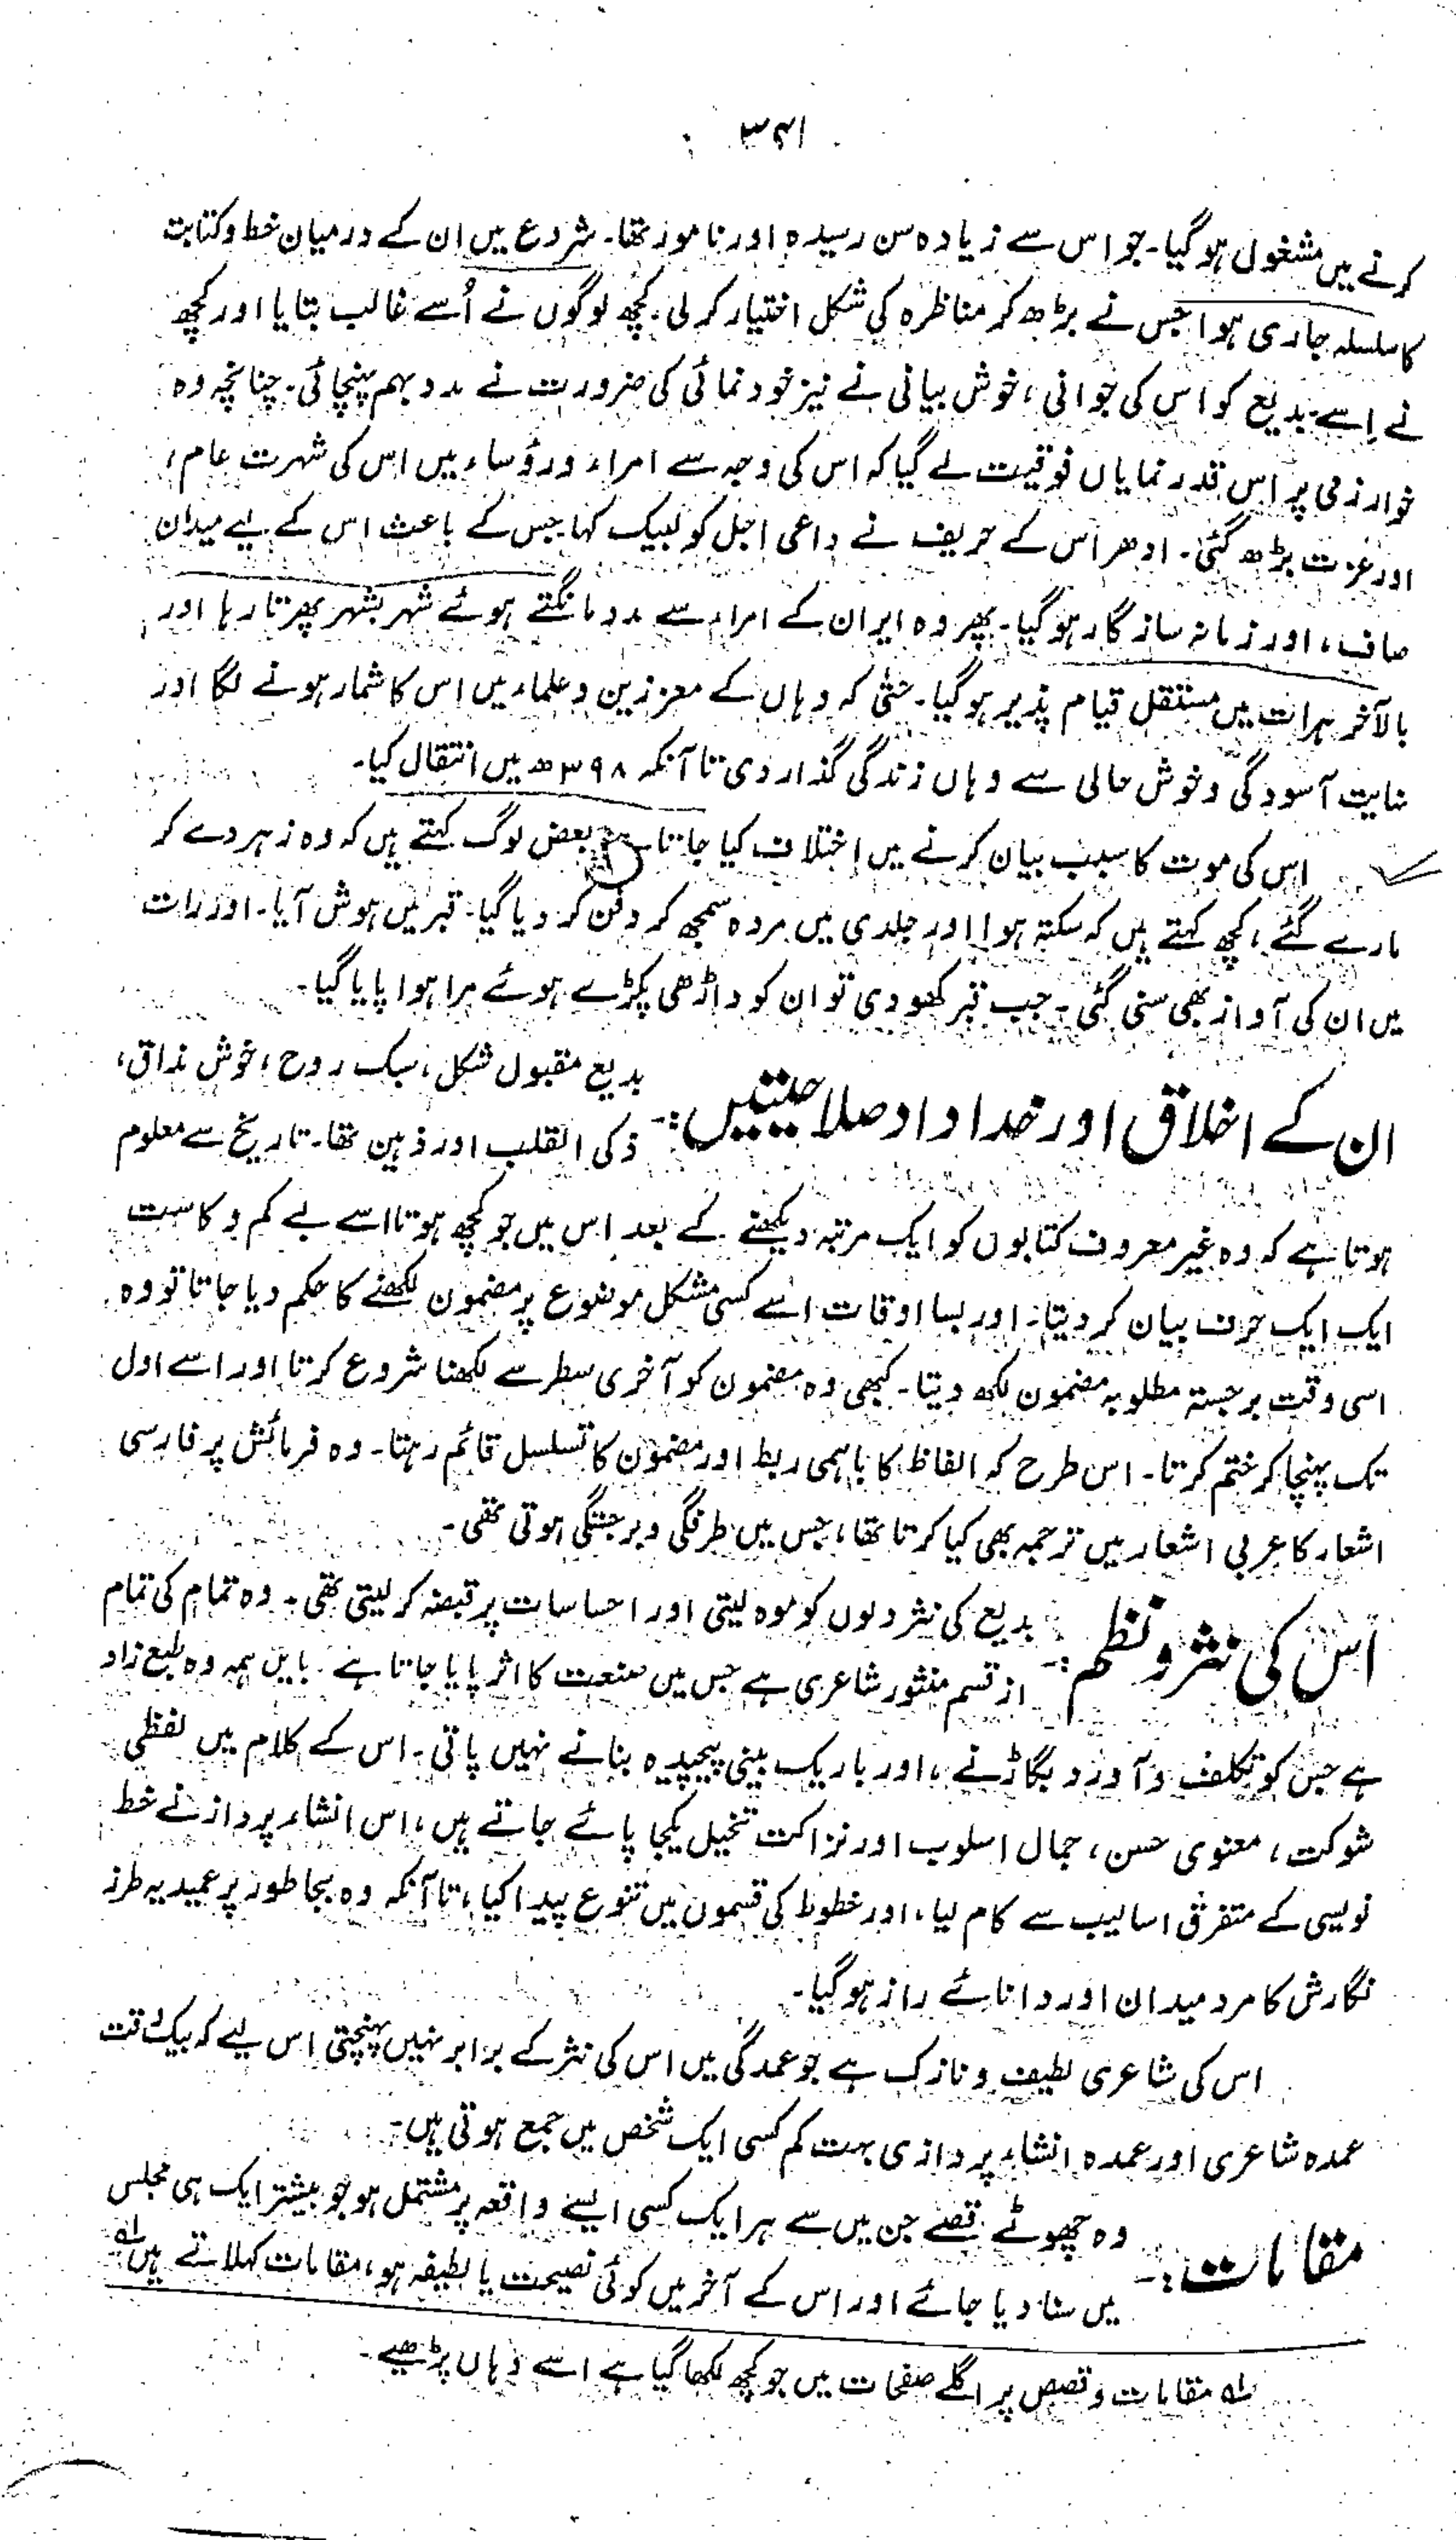 ۳۴۱
کرنے میں مشغول ہوگیا۔ جو اس سے زیادہ سن رسیدہ اور نامور تھا۔ شروع میں ان کے درمیان خط و کتابت
کا سلسلہ جاری ہوا جس نے بڑھ کر مناظرہ کی شکل اختیار کر لی، کچھ لوگوں نے اُسے غالب بتایا اور کچھ
نے اِسے۔ بدیع کو اس کی جوانی، خوش بیانی نے نیز خود نمائی کی ضرورت نے مدد بہم پہنچائی۔ چنانچہ وہ
خوارزمی پر اس قدر نمایاں فوقیت لے گیا کہ اس کی وجہ سے امراء و رؤساء میں اس کی شہرت عام،
اور عزت بڑھ گئی۔ ادھر اس کے حریف نے داعی اجل کو لبیک کہا جس کے باعث اس کے لیے میدان
صاف، اور زمانہ سازگار ہوگیا۔ پھر وہ ایران کے امراء سے مدد مانگتے ہوئے شہر بشہر پھرتا رہا اور
بالآخر ہرات میں مستقل قیام پذیر ہوگیا۔ حتیٰ کہ وہاں کے معززین و علماء میں اس کا شمار ہونے لگا اور
نہایت آسودگی و خوش حالی سے وہاں زندگی گذار دی تا آنکہ ۳۹۸ھ میں انتقال کیا۔
اس کی موت کا سبب بیان کرنے میں اختلاف کیا جاتا ہے بعض لوگ کہتے ہیں کہ وہ زہر دے کر
مارے گئے، کچھ کہتے ہیں کہ سکتہ ہوا اور جلدی میں مردہ سمجھ کر دفن کر دیا گیا۔ قبر میں ہوش آیا۔ اور رات
میں ان کی آواز بھی سنی گئی۔ جب قبر کھودی تو ان کو داڑھی پکڑے ہوئے مرا ہوا پایا گیا۔
ان کے اخلاق اور خداداد صلاحیتیں:۔ بدیع مقبول شکل، سبک روح، خوش مذاق،
ذکی القلب اور ذہین تھا۔ تاریخ سے معلوم
ہوتا ہے کہ وہ غیر معروف کتابوں کو ایک مرتبہ دیکھنے کے بعد اس میں جو کچھ ہوتا اسے بے کم و کاست
ایک ایک حرف بیان کر دیتا۔ اور بسا اوقات اسے کسی مشکل موضوع پر مضمون لکھنے کا حکم دیا جاتا تو وہ
اسی وقت برجستہ مطلوبہ مضمون لکھ دیتا۔ کبھی وہ مضمون کو آخری سطر سے لکھنا شروع کرتا اور اسے اول
تک پہنچا کر ختم کرتا۔ اس طرح کہ الفاظ کا باہمی ربط اور مضمون کا تسلسل قائم رہتا۔ وہ فرمائش پر فارسی
اشعار کا عربی اشعار میں ترجمہ بھی کیا کرتا تھا، جس میں طرفگی و برجستگی ہوتی تھی۔
اس کی نثر و نظم:۔ بدیع کی نثر دلوں کو موہ لیتی اور احساسات پر قبضہ کر لیتی تھی۔ وہ تمام کی تمام
از قسم منثور شاعری ہے جس میں صنعت کا اثر پایا جاتا ہے۔ بایں ہمہ وہ طبع زاد
ہے جس کو تکلف و آورد بگاڑنے، اور باریک بینی پیچیدہ بنانے نہیں پاتی۔ اس کے کلام میں لفظی
شوکت، معنوی حسن، جمال اسلوب اور نزاکت تخیل یکجا پائے جاتے ہیں، اس انشاء پرداز نے خط
نویسی کے متفرق اسالیب سے کام لیا، اور خطوط کی قسموں میں تنوع پیدا کیا، تا آنکہ وہ بجا طور پر عمیدیہ طرز
نگارش کا مرد میدان اور دانائے راز ہوگیا۔
اس کی شاعری لطیف و نازک ہے جو عمدگی میں اس کی نثر کے برابر نہیں پہنچتی اس لیے کہ بیک وقت
عمدہ شاعری اور عمدہ انشاء پردازی بہت کم کسی ایک شخص میں جمع ہوتی ہیں۔
مقامات:۔ وہ چھوٹے قصے جن میں سے ہر ایک کسی ایسے واقعہ پر مشتمل ہو جو بیشتر ایک ہی مجلس
میں سنا دیا جائے اور اس کے آخر میں کوئی نصیحت یا لطیفہ ہو، مقامات کہلاتے ہیں۔ ؎۱
؎۱ مقامات و قصص پر اگلے صفحات میں جو کچھ لکھا گیا ہے اسے وہاں پڑھیے۔